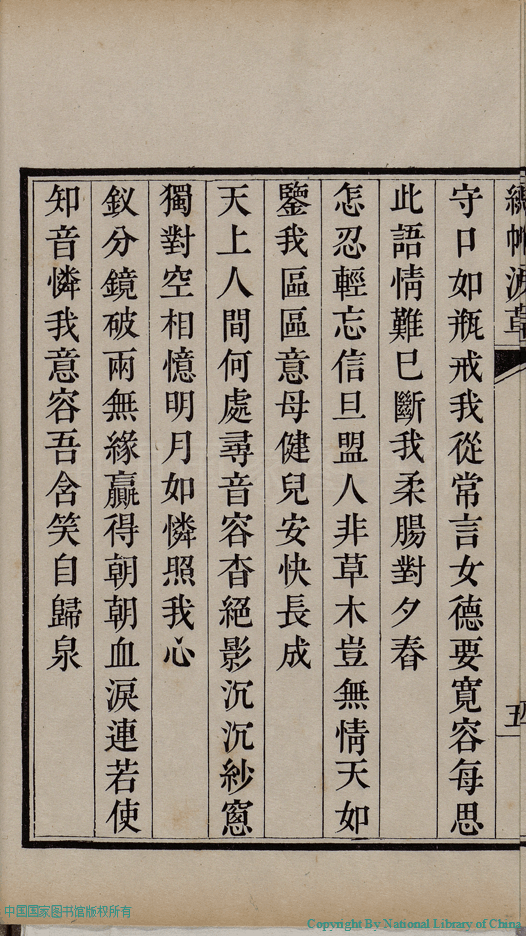 守口如瓶戒我從常言女德要寬容每思
此語情難巳斷我柔腸對夕舂
怎忍輕忘信旦盟人非草木豈無情天如
鑒我區區意母健兒安快長成
天上人間何處尋音容杳絕影沉沉紗窻
獨對空相憶明月如憐照我心
釵分鏡破兩無緣贏得朝朝血淚連若使
知音憐我意容吾含笑自歸泉
五
中国国家图书馆版权所有
Copyright By National Library of China